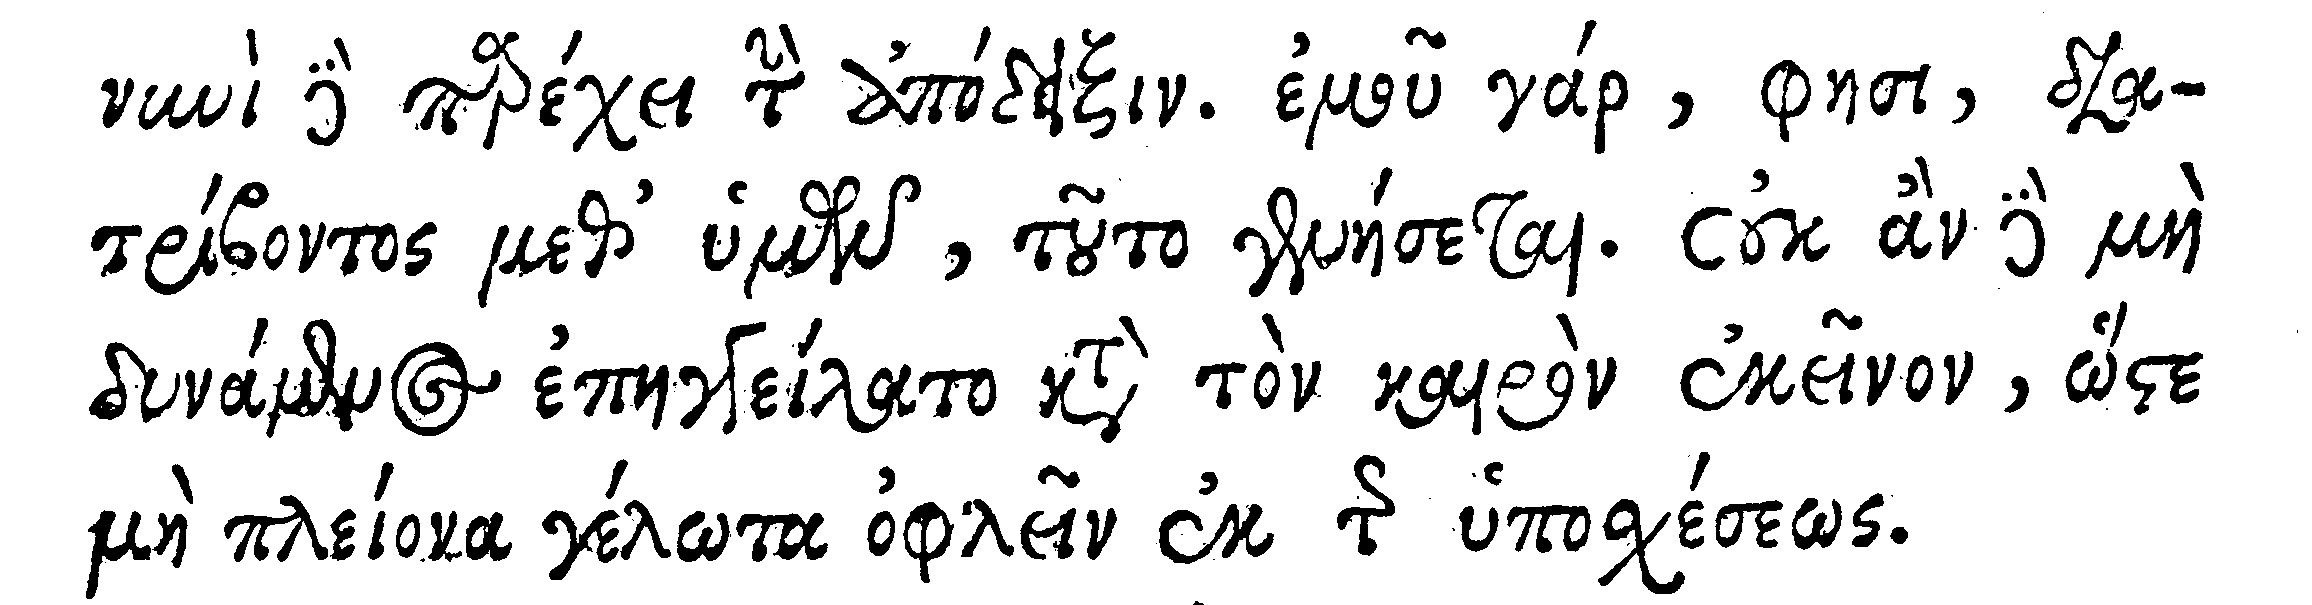 νωὶ δὲ παρέχει τὴν ἀπόδειξιν. ἐμοῦ γάρ, φησι, δια-
τρίβοντος μεθ’ ὑμῶν, τοῦτο γενήσεται. οὐκ ἂν δὲ μὴ
δυνάμενος ἐπηγγείλατο κατὰ τὸν καιρὸν ἐκεῖνον, ὥστε
μὴ πλείονα γέλωτα ὀφλεῖν ἐκ τῆς ὑποσχέσεως.